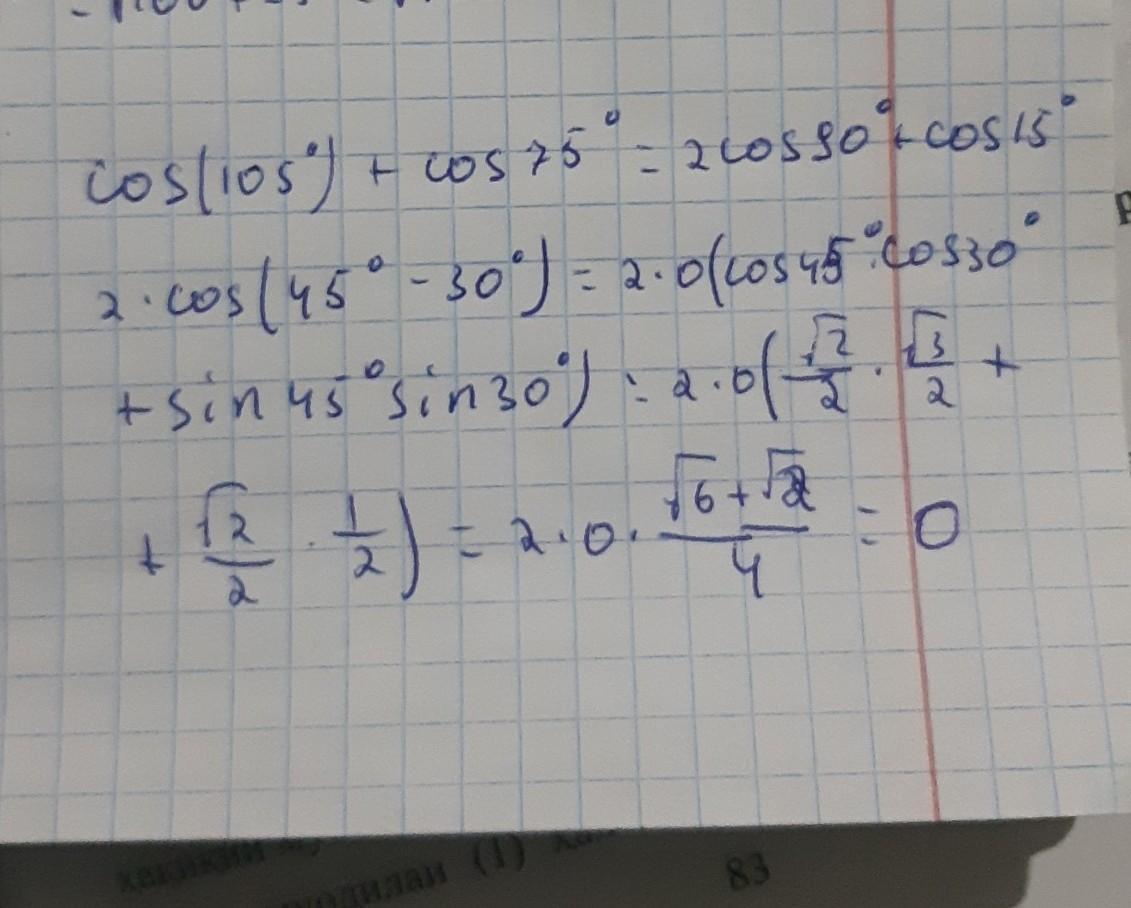 cos(105°) + cos75° = 2cos90° + cos15°
2·cos(45° - 30°) = 2·0(cos45°·cos30°
+ sin45°sin30°) = 2·0(√2/2 · √3/2 +
+ √2/2 · 1/2) = 2·0· (√6+√2)/4 = 0
(1)
83